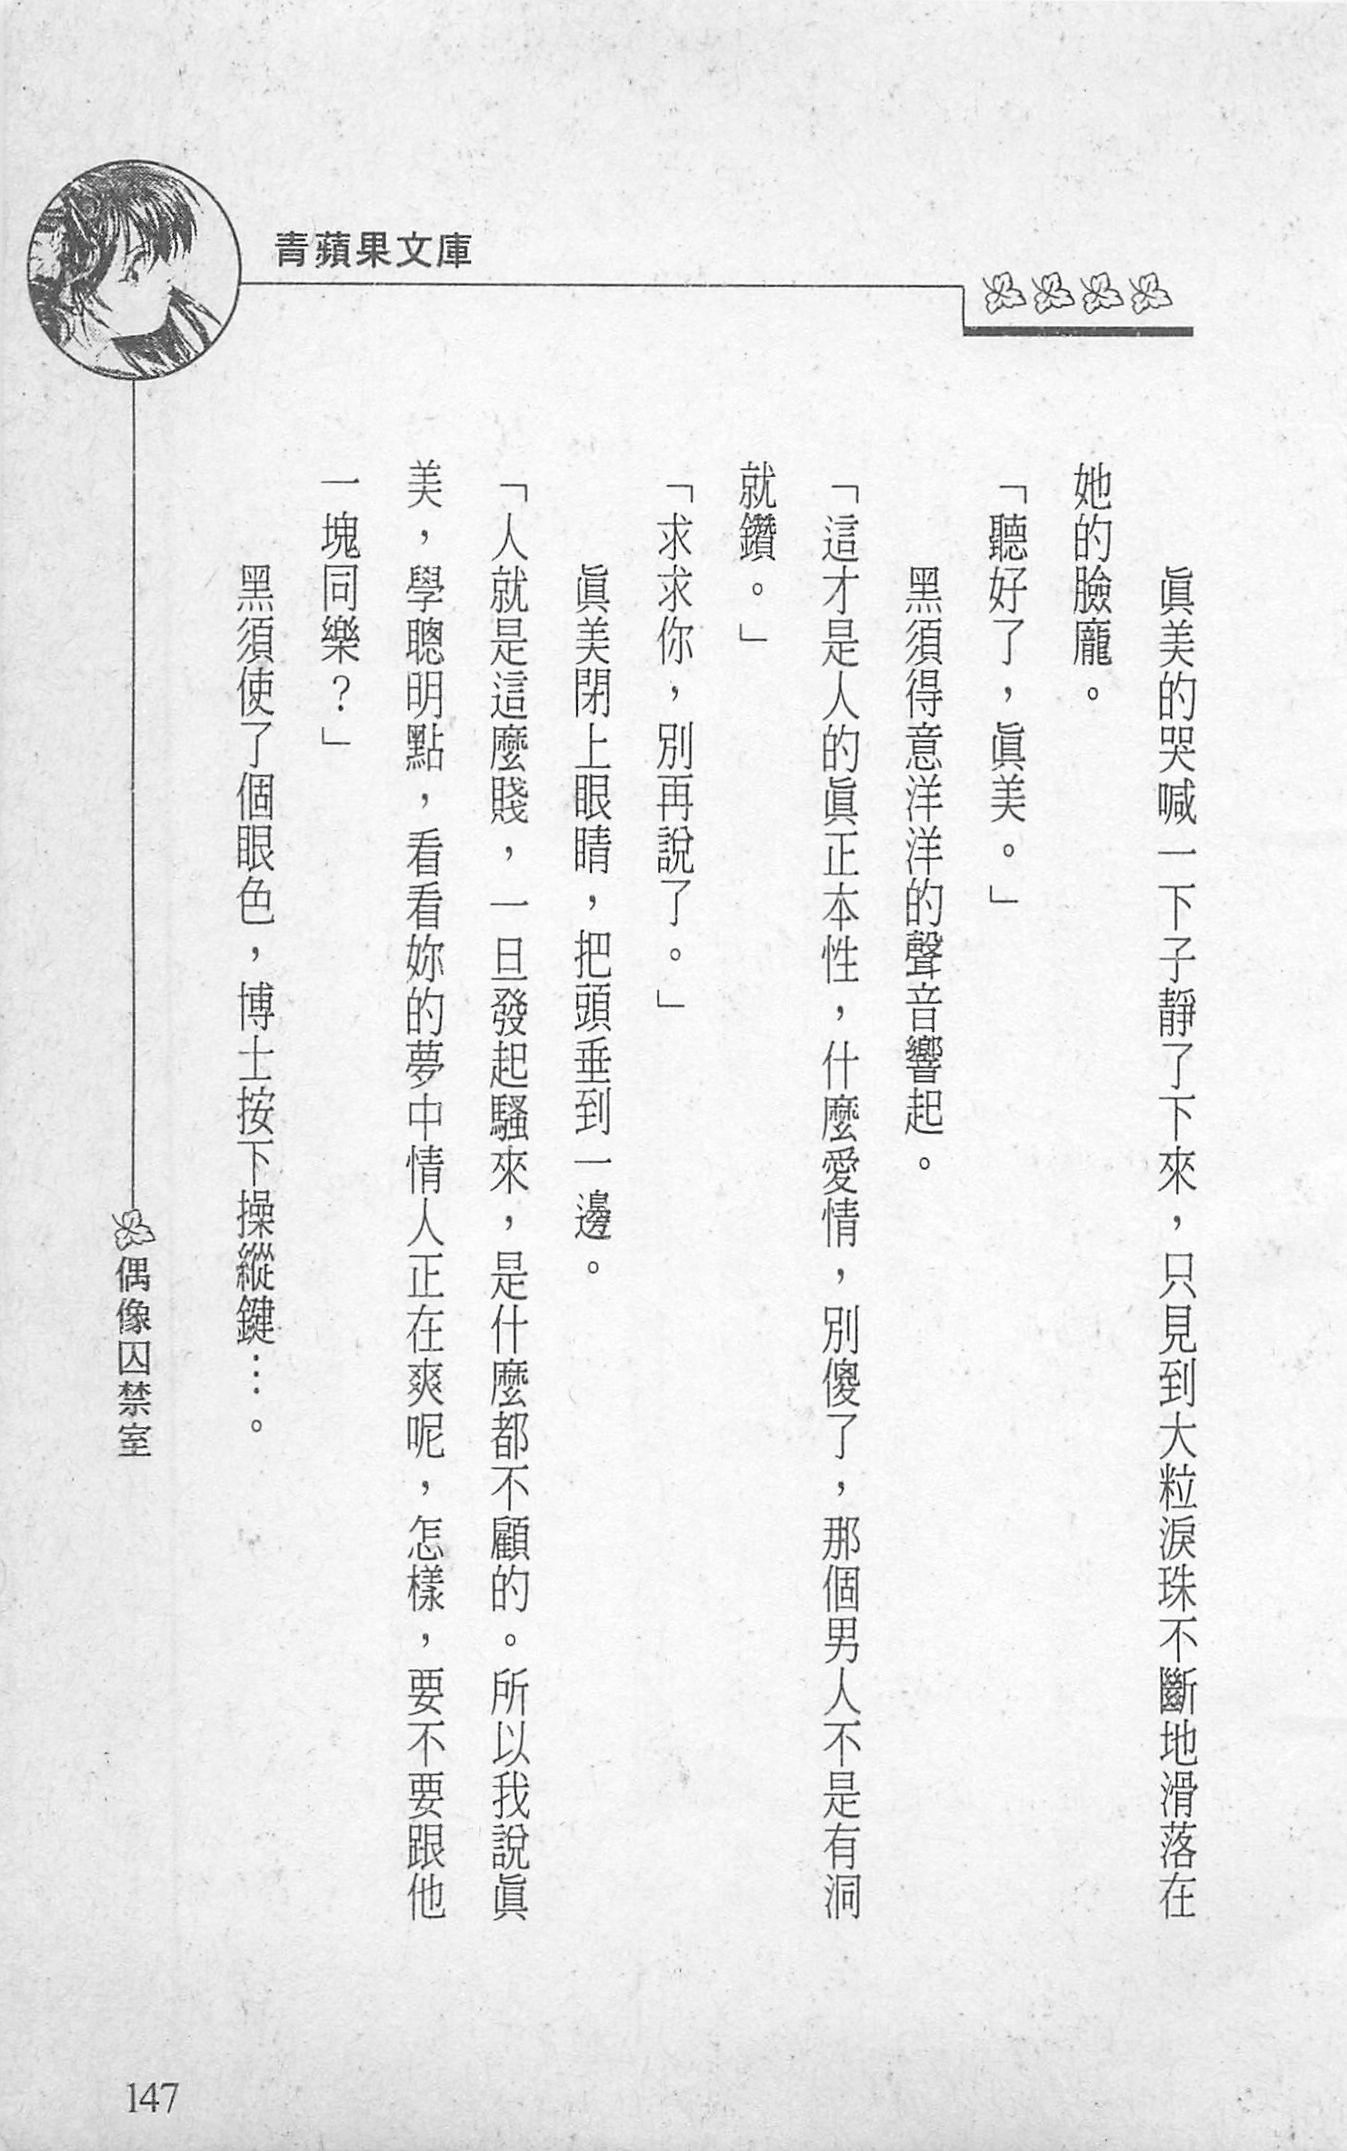 青蘋果文庫
眞美的哭喊一下子靜了下來，只見到大粒淚珠不斷地滑落在
她的臉龐。
「聽好了，眞美。」
黑須得意洋洋的聲音響起。
「這才是人的眞正本性，什麼愛情，別傻了，那個男人不是有洞
就鑽。」
「求求你，別再說了。」
眞美閉上眼睛，把頭垂到一邊。
「人就是這麼賤，一旦發起騷來，是什麼都不顧的。所以我說眞
美，學聰明點，看看妳的夢中情人正在爽呢，怎樣，要不要跟他
一塊同樂？」
黑須使了個眼色，博士按下操縱鍵…。
偶像囚禁室
147